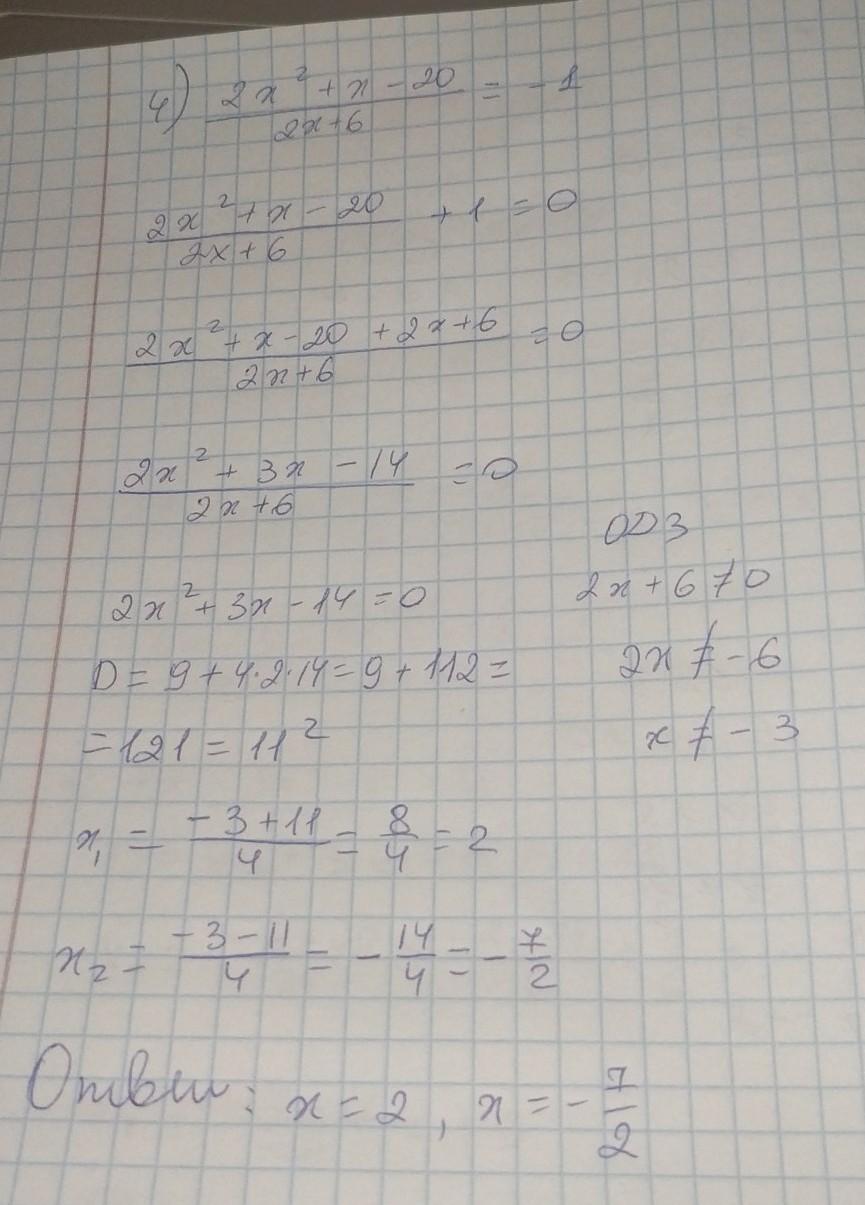 4) (2x² + x - 20)/(2x+6) = -1
(2x² + x - 20)/(2x+6) + 1 = 0
(2x² + x - 20 + 2x + 6)/(2x+6) = 0
(2x² + 3x - 14)/(2x+6) = 0
ОДЗ
2x² + 3x - 14 = 0
2x + 6 ≠ 0
D = 9 + 4·2·14 = 9 + 112 =
2x ≠ -6
= 121 = 11²
x ≠ -3
x₁ = (-3+11)/4 = 8/4 = 2
x₂ = (-3-11)/4 = -14/4 = -7/2
Ответ: x = 2, x = -7/2